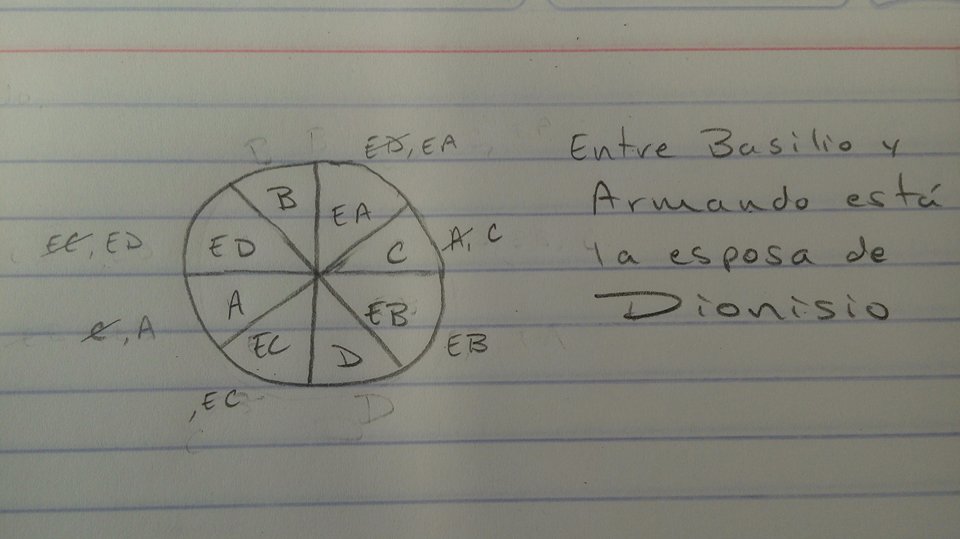 E̶D̶, EA
B
EA
E̶C̶, ED
ED
C
A̶, C
C̶, A
A
EB
EC
D
EB
, EC
D
Entre Basilio y
Armando está
la esposa de
Dionisio